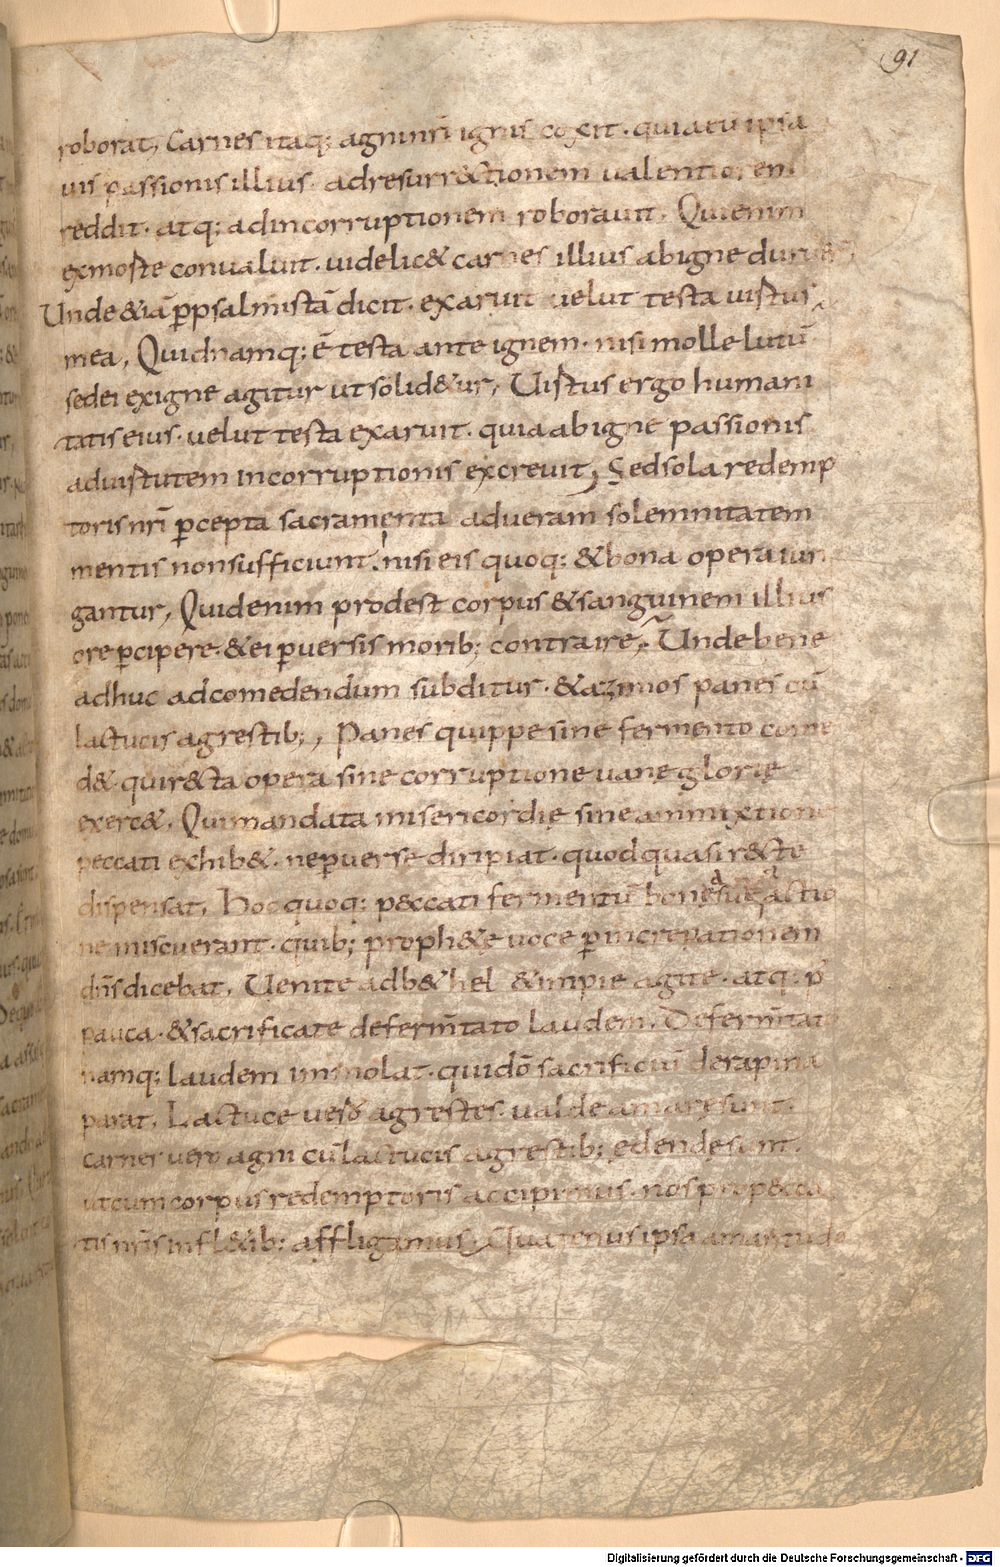 91
roborat, Carnes itaq; agni nr̄i ignis coxit· quia eū ipsa
uis passionis illius· adresurr&ctionem ualentiorem
reddit· atq; adincorruptionem roborauit. Qui enim
exmorte conualuit· uidelic& carnes illius abigne
Unde &iā p̲psalmistā dicit· exaruit uelut testa uirtus
mea, Quid namq; ē testa ante ignem· nisi molle lutū·
sed ei exigne agitur ut solid&ur, Uirtus ergo humani
tatis eius· uelut testa exaruit· quia abigne passionis
aduirtutem incorruptionis excreuit, Sed sola redemp
toris nr̄i p̲cepta sacramenta adueram solemnitatem
mentis nonsufficiunt· nisi eis quoq; &bona opera iun
gantur, Quid enim prodest corpus &sanguinem illius
ore p̲cipere· &ei p̲uersis morib; contraire, Unde bene
adhuc adcomedendum subditur· &azimos panes cū
lactucis agrestib;, Panes quippe sine fermento come
d&· qui r&cta opera sine corruptione uanę glorię
exerc&, Qui mandata misericordię sine ammixtione
peccati exhib&· ne p̲uerse diripiat· quod quasi r&cte
dispensat, Hoc quoq; p&ccati fermentū bonę suę actio
ne miscuerant· quib; proph&ę uoce p̲ increpationem
dn̄s dicebat, Uenite adb&hel &impie agite· atq; p̲
pauca· &sacrificate defermtato laudem, Defermtat
namq; laudem immolat· qui dō sacrificiū derapina
parat, Lactuce uero agrestes· ualde amarę sunt·
carnes uero agni cū lactucis agrestib; edendę sunt·
ut cum corpus redemptoris accipimus· nos prop&cca
tis nr̄is infl&ib; affligamus, Quatenus ipsa amaritudo
Digitalisierung gefördert durch die Deutsche Forschungsgemeinschaft - DFG